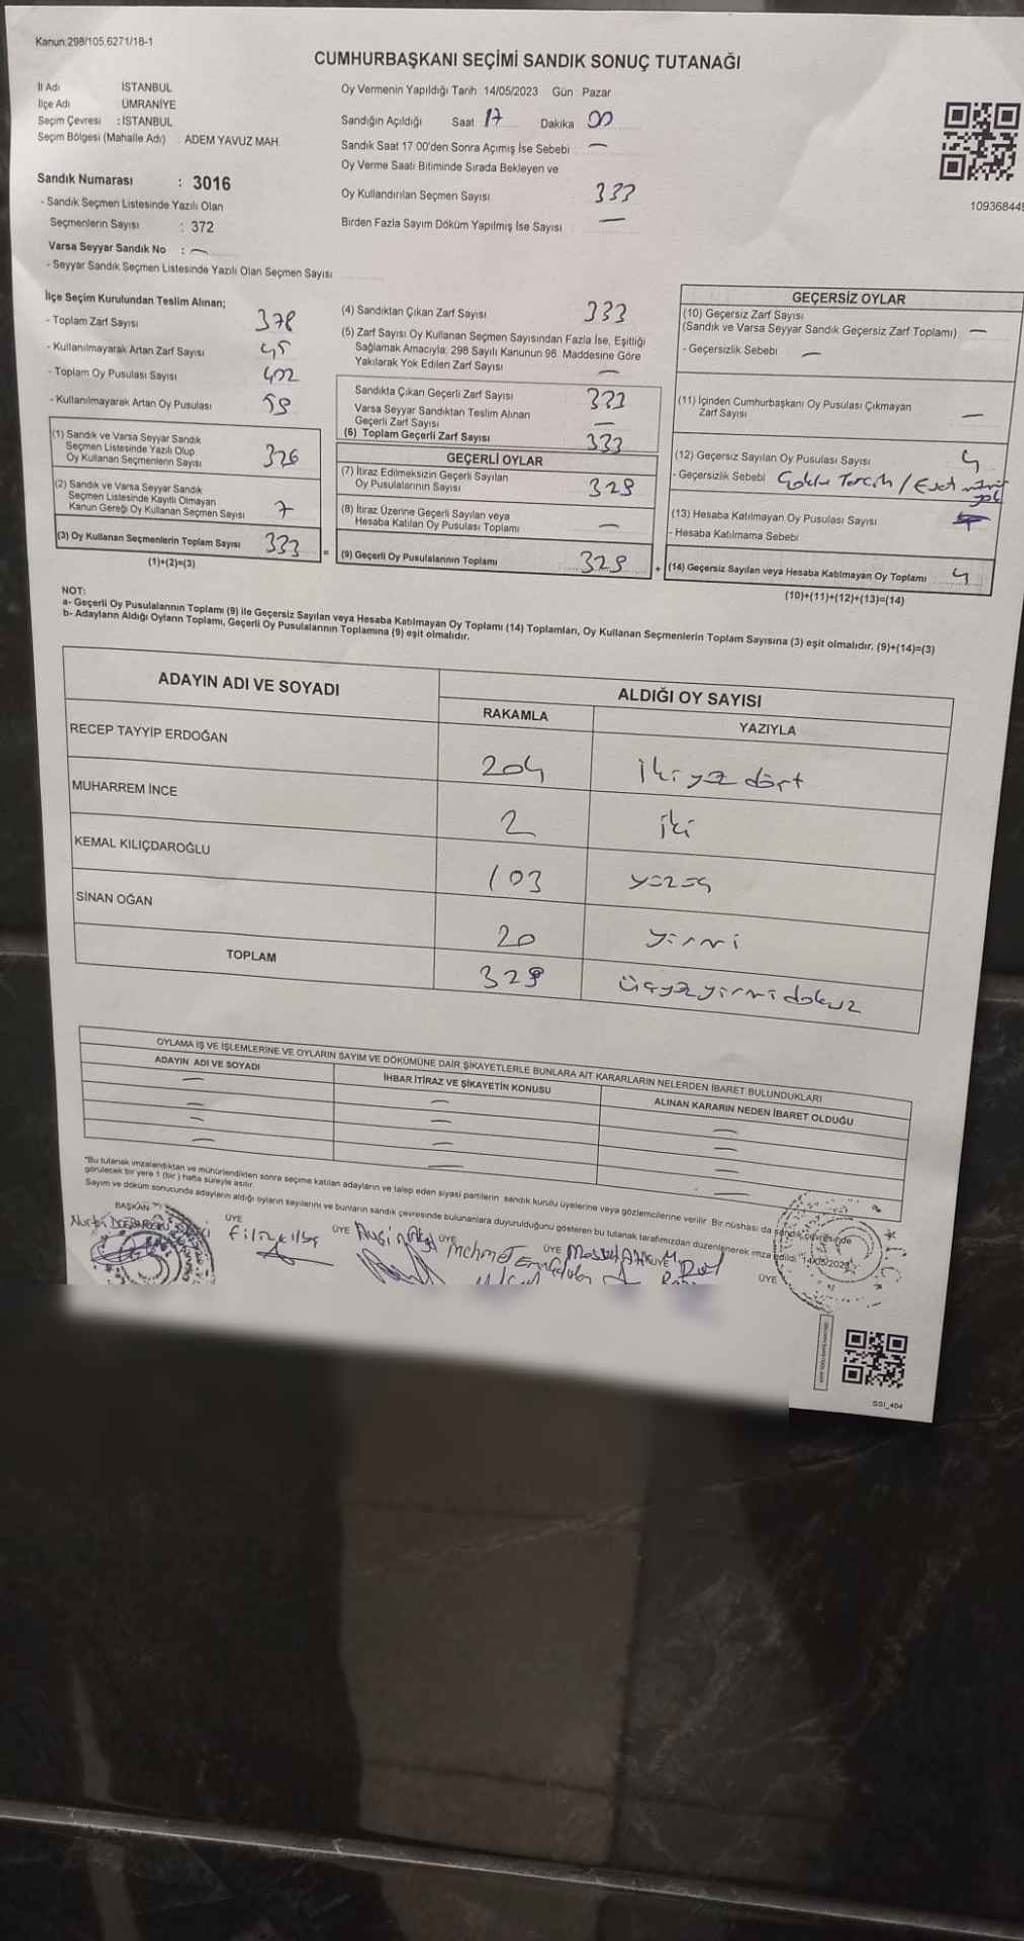 Kanun:298/105,6271/18-1
CUMHURBAŞKANI SEÇİMİ SANDIK SONUÇ TUTANAĞI
İl Adı İSTANBUL
İlçe Adı ÜMRANİYE
Seçim Çevresi : İSTANBUL
Seçim Bölgesi (Mahalle Adı) : ADEM YAVUZ MAH.
Sandık Numarası : 3016
- Sandık Seçmen Listesinde Yazılı Olan
Seçmenlerin Sayısı : 372
Varsa Seyyar Sandık No : —
- Seyyar Sandık Seçmen Listesinde Yazılı Olan Seçmen Sayısı
Oy Vermenin Yapıldığı Tarih 14/05/2023 Gün Pazar
Sandığın Açıldığı Saat 17 Dakika 00
Sandık Saat 17 00'den Sonra Açımış İse Sebebi —
Oy Verme Saati Bitiminde Sırada Bekleyen ve
Oy Kullandırılan Seçmen Sayısı 333
Birden Fazla Sayım Döküm Yapılmış İse Sayısı —
109368449
İlçe Seçim Kurulundan Teslim Alınan;
- Toplam Zarf Sayısı 378
- Kullanılmayarak Artan Zarf Sayısı 45
- Toplam Oy Pusulası Sayısı 402
- Kullanılmayarak Artan Oy Pusulası
(1) Sandık ve Varsa Seyyar Sandık
Seçmen Listesinde Yazılı Olup
Oy Kullanan Seçmenlerin Sayısı 326
(2) Sandık ve Varsa Seyyar Sandık
Seçmen Listesinde Kayıtlı Olmayan
Kanun Gereği Oy Kullanan Seçmen Sayısı 7
(3) Oy Kullanan Seçmenlerin Toplam Sayısı 333 =
(1)+(2)=(3)
(4) Sandıktan Çıkan Zarf Sayısı 333
(5) Zarf Sayısı Oy Kullanan Seçmen Sayısından Fazla İse, Eşitliği
Sağlamak Amacıyla, 298 Sayılı Kanunun 98. Maddesine Göre
Yakılarak Yok Edilen Zarf Sayısı —
Sandıkta Çıkan Geçerli Zarf Sayısı 333
Varsa Seyyar Sandıktan Teslim Alınan
Geçerli Zarf Sayısı —
(6) Toplam Geçerli Zarf Sayısı 333
GEÇERLİ OYLAR
(7) İtiraz Edilmeksizin Geçerli Sayılan
Oy Pusulalarının Sayısı 329
(8) İtiraz Üzerine Geçerli Sayılan veya
Hesaba Katılan Oy Pusulası Toplamı —
(9) Geçerli Oy Pusulalarının Toplamı 329 +
GEÇERSİZ OYLAR
(10) Geçersiz Zarf Sayısı
(Sandık ve Varsa Seyyar Sandık Geçersiz Zarf Toplamı) —
- Geçersizlik Sebebi —
(11) İçinden Cumhurbaşkanı Oy Pusulası Çıkmayan
Zarf Sayısı —
(12) Geçersiz Sayılan Oy Pusulası Sayısı 4
- Geçersizlik Sebebi Çoklu Tercih / Evet mührü
yok
(13) Hesaba Katılmayan Oy Pusulası Sayısı
- Hesaba Katılmama Sebebi
(14) Geçersiz Sayılan veya Hesaba Katılmayan Oy Toplamı 4
(10)+(11)+(12)+(13)=(14)
NOT:
a- Geçerli Oy Pusulalarının Toplamı (9) ile Geçersiz Sayılan veya Hesaba Katılmayan Oy Toplamı (14) Toplamları, Oy Kullanan Seçmenlerin Toplam Sayısına (3) eşit olmalıdır. (9)+(14)=(3)
b- Adayların Aldığı Oyların Toplamı, Geçerli Oy Pusulalarının Toplamına (9) eşit olmalıdır.
ADAYIN ADI VE SOYADI
ALDIĞI OY SAYISI
RAKAMLA YAZIYLA
RECEP TAYYİP ERDOĞAN 204 ikiyüz dört
MUHARREM İNCE 2 iki
KEMAL KILIÇDAROĞLU 103 yüzüç
SİNAN OĞAN 20 yirmi
TOPLAM 329 üçyüzyirmidokuz
OYLAMA İŞ VE İŞLEMLERİNE VE OYLARIN SAYIM VE DÖKÜMÜNE DAİR ŞİKAYETLERLE BUNLARA AİT KARARLARIN NELERDEN İBARET BULUNDUKLARI
ADAYIN ADI VE SOYADI İHBAR İTİRAZ VE ŞİKAYETİN KONUSU ALINAN KARARIN NEDEN İBARET OLDUĞU
— — —
— — —
— — —
— — —
"Bu tutanak imzalandıktan ve mühürlendikten sonra seçime katılan adayların ve talep eden siyasi partilerin sandık kurulu üyelerine veya gözlemcilerine verilir. Bir nüshası da sandık çevresinde
görülecek bir yere 1 (bir) hafta süreyle asılır.
Sayım ve döküm sonucunda adayların aldığı oyların sayılarını ve bunların sandık çevresinde bulunanlara duyurulduğunu gösteren bu tutanak tarafımızdan düzenlenerek imza edildi. 14/05/2023
BAŞKAN ÜYE ÜYE ÜYE ÜYE ÜYE ÜYE
SSI_404